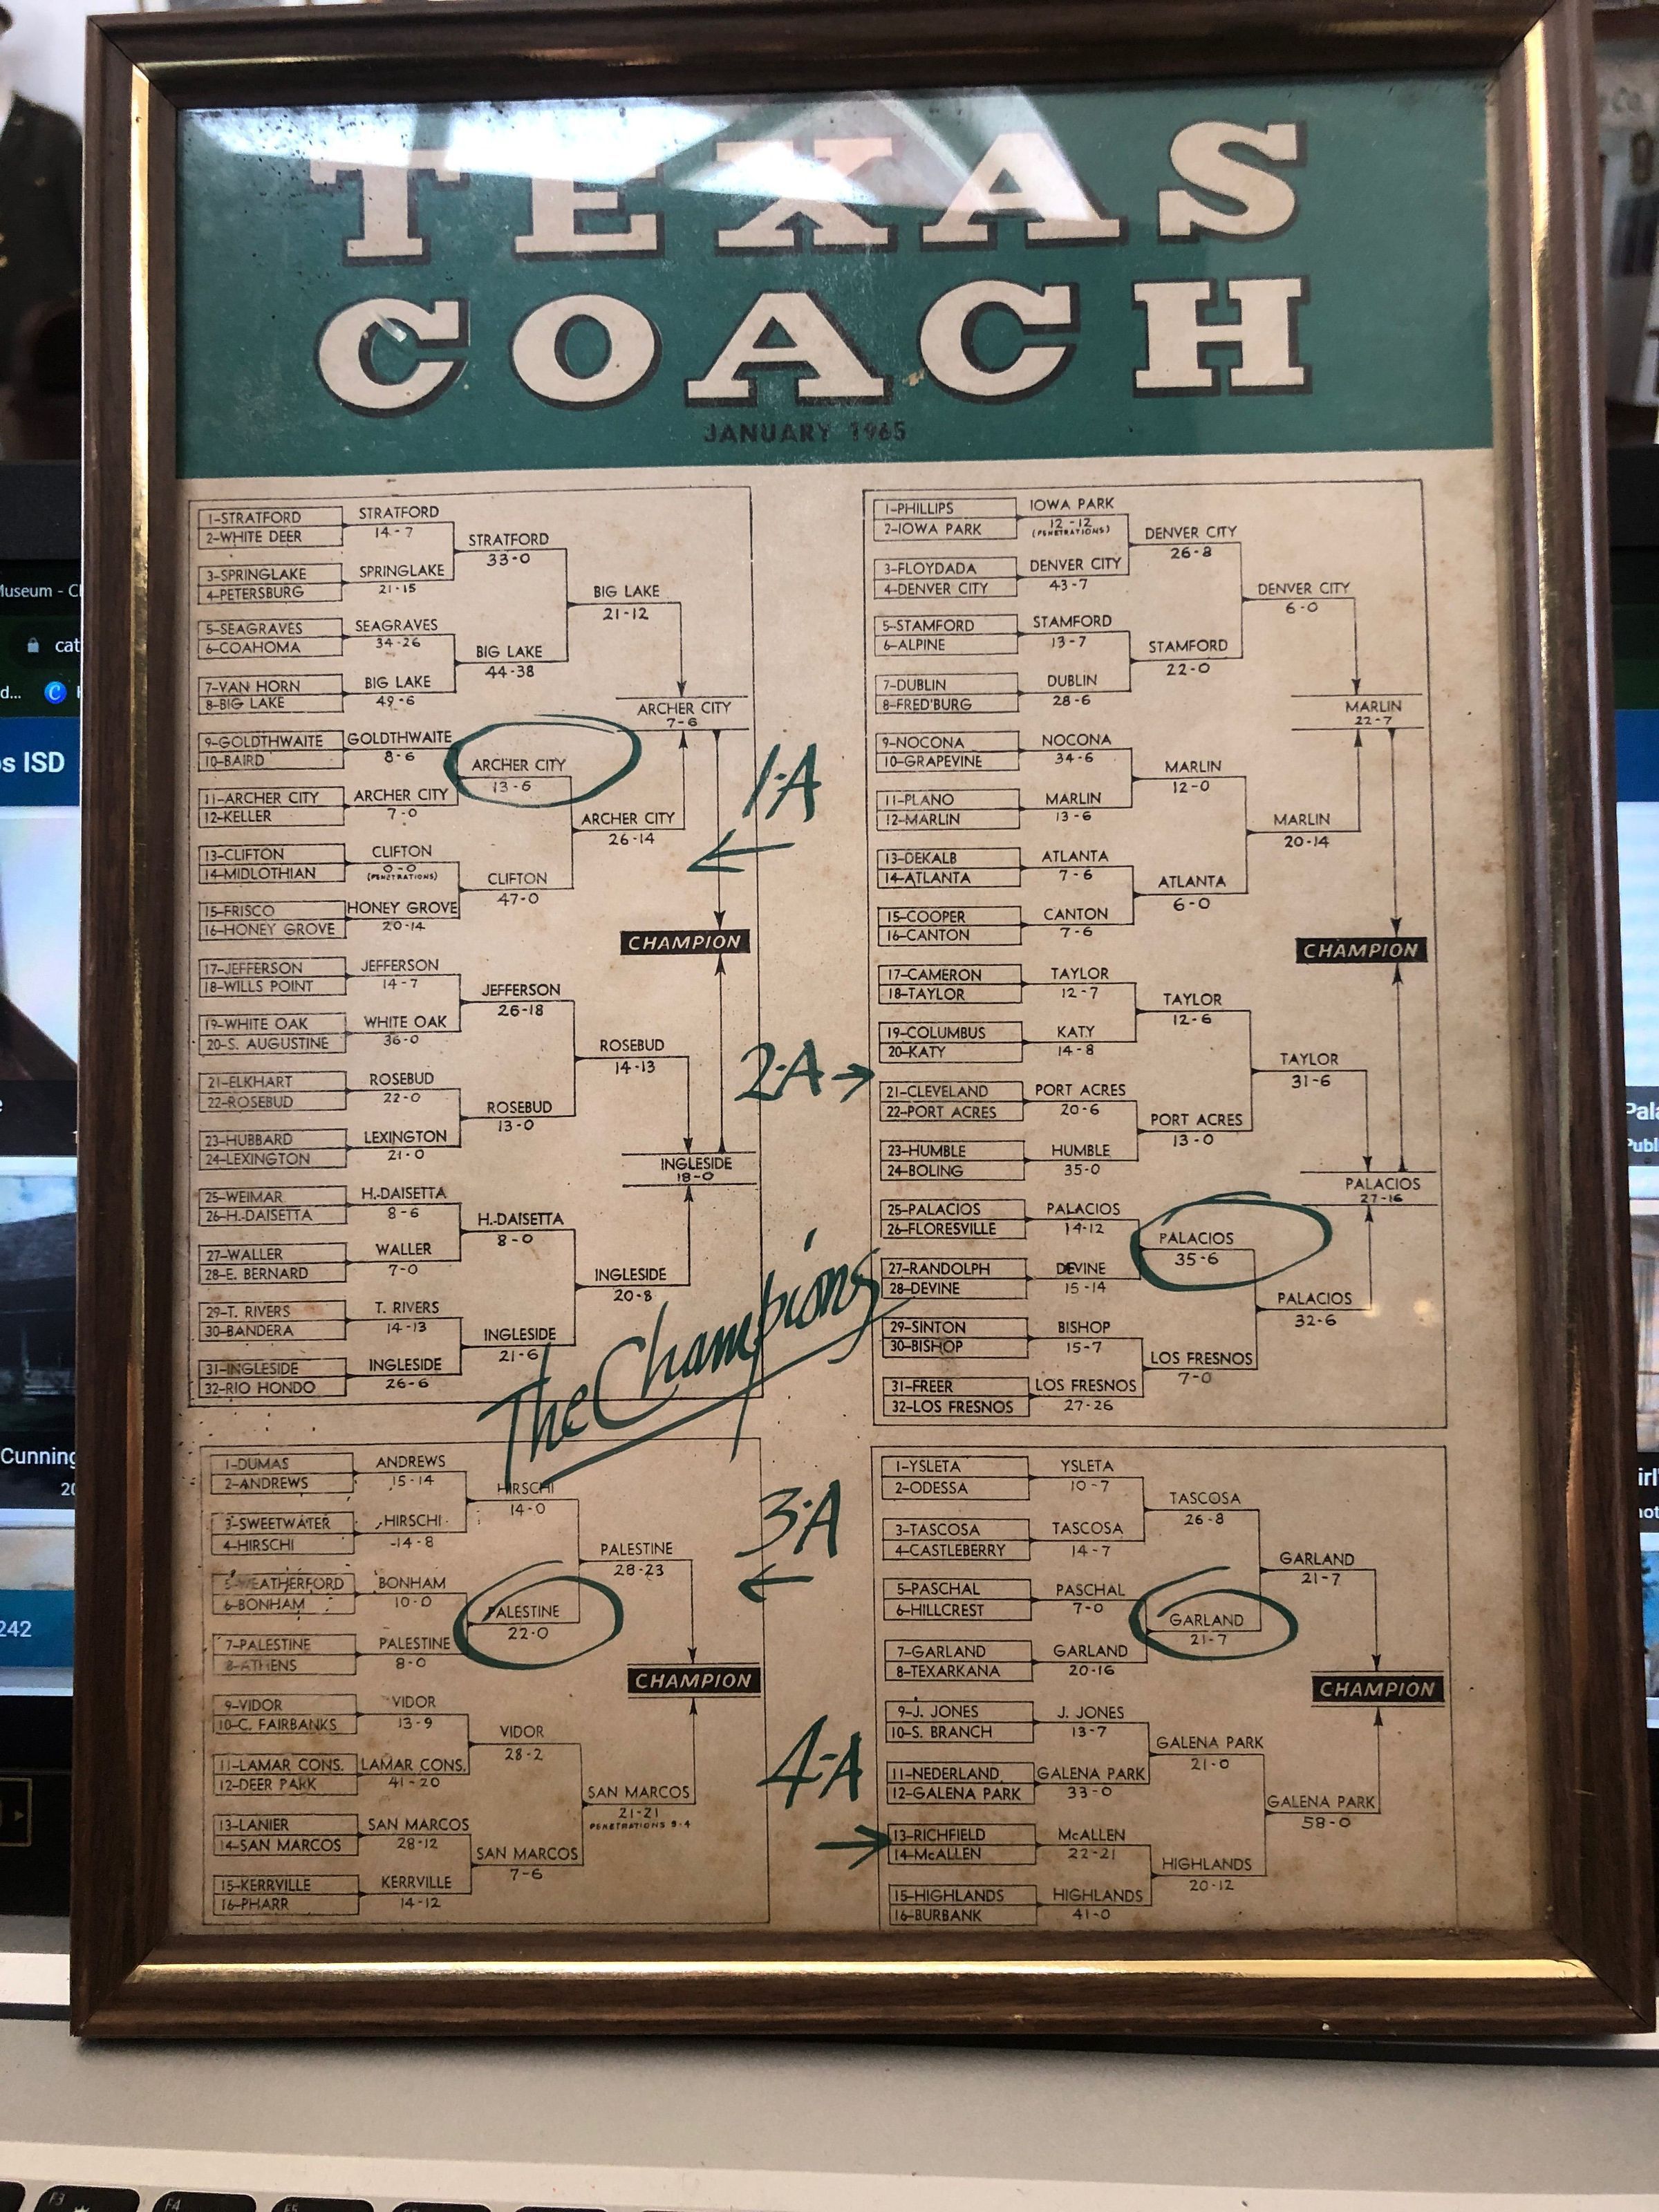 TEXAS
COACH
JANUARY 1965
1-STRATFORD
2-WHITE DEER
3-SPRINGLAKE
4-PETERSBURG
5-SEAGRAVES
6-COAHOMA
7-VAN HORN
8-BIG LAKE
9-GOLDTHWAITE
10-BAIRD
11-ARCHER CITY
12-KELLER
13-CLIFTON
14-MIDLOTHIAN
15-FRISCO
16-HONEY GROVE
17-JEFFERSON
18-WILLS POINT
19-WHITE OAK
20-S. AUGUSTINE
21-ELKHART
22-ROSEBUD
23-HUBBARD
24-LEXINGTON
25-WEIMAR
26-H.DAISETTA
27-WALLER
28-E. BERNARD
29-T. RIVERS
30-BANDERA
31-INGLESIDE
32-RIO HONDO
STRATFORD
14-7
SPRINGLAKE
21-15
SEAGRAVES
34-26
BIG LAKE
49-6
GOLDTHWAITE
8-6
ARCHER CITY
7-0
CLIFTON
0-0
(PENETRATIONS)
HONEY GROVE
20-14
JEFFERSON
14-7
WHITE OAK
36-0
ROSEBUD
22-0
LEXINGTON
21-0
H.-DAISETTA
8-6
WALLER
7-0
T. RIVERS
14-13
INGLESIDE
26-6
STRATFORD
33-0
BIG LAKE
44-38
ARCHER CITY
13-6
CLIFTON
47-0
JEFFERSON
26-18
ROSEBUD
13-0
H.-DAISETTA
8-0
INGLESIDE
21-6
BIG LAKE
21-12
ARCHER CITY
26-14
ROSEBUD
14-13
INGLESIDE
20-8
ARCHER CITY
7-6
INGLESIDE
18-0
CHAMPION
1-A
1-PHILLIPS
2-IOWA PARK
3-FLOYDADA
4-DENVER CITY
5-STAMFORD
6-ALPINE
7-DUBLIN
8-FRED'BURG
9-NOCONA
10-GRAPEVINE
11-PLANO
12-MARLIN
13-DEKALB
14-ATLANTA
15-COOPER
16-CANTON
17-CAMERON
18-TAYLOR
19-COLUMBUS
20-KATY
21-CLEVELAND
22-PORT ACRES
23-HUMBLE
24-BOLING
25-PALACIOS
26-FLORESVILLE
27-RANDOLPH
28-DEVINE
29-SINTON
30-BISHOP
31-FREER
32-LOS FRESNOS
IOWA PARK
12-12
(PENETRATIONS)
DENVER CITY
43-7
STAMFORD
13-7
DUBLIN
28-6
NOCONA
34-6
MARLIN
13-6
ATLANTA
7-6
CANTON
7-6
TAYLOR
12-7
KATY
14-8
PORT ACRES
20-6
HUMBLE
35-0
PALACIOS
14-12
DEVINE
15-14
BISHOP
15-7
LOS FRESNOS
27-26
DENVER CITY
26-8
STAMFORD
22-0
MARLIN
12-0
ATLANTA
6-0
TAYLOR
12-6
PORT ACRES
13-0
PALACIOS
35-6
LOS FRESNOS
7-0
DENVER CITY
6-0
MARLIN
20-14
TAYLOR
31-6
PALACIOS
32-6
MARLIN
22-7
PALACIOS
27-16
CHAMPION
2-A
The Champions
1-DUMAS
2-ANDREWS
3-SWEETWATER
4-HIRSCHI
5-WEATHERFORD
6-BONHAM
7-PALESTINE
8-ATHENS
9-VIDOR
10-C. FAIRBANKS
11-LAMAR CONS.
12-DEER PARK
13-LANIER
14-SAN MARCOS
15-KERRVILLE
16-PHARR
ANDREWS
15-14
HIRSCHI
14-8
BONHAM
10-0
PALESTINE
8-0
VIDOR
13-9
LAMAR CONS.
41-20
SAN MARCOS
28-12
KERRVILLE
14-12
HIRSCHI
14-0
PALESTINE
22-0
VIDOR
28-2
SAN MARCOS
7-6
PALESTINE
28-23
SAN MARCOS
21-21
PENETRATIONS 9-4
CHAMPION
3-A
1-YSLETA
2-ODESSA
3-TASCOSA
4-CASTLEBERRY
5-PASCHAL
6-HILLCREST
7-GARLAND
8-TEXARKANA
9-J. JONES
10-S. BRANCH
11-NEDERLAND
12-GALENA PARK
13-RICHFIELD
14-McALLEN
15-HIGHLANDS
16-BURBANK
YSLETA
10-7
TASCOSA
14-7
PASCHAL
7-0
GARLAND
20-16
J. JONES
13-7
GALENA PARK
33-0
McALLEN
22-21
HIGHLANDS
41-0
TASCOSA
26-8
GARLAND
21-7
GALENA PARK
21-0
HIGHLANDS
20-12
GARLAND
21-7
GALENA PARK
58-0
CHAMPION
4-A
cat
d...
ISD
Cunning
242
F3
F4